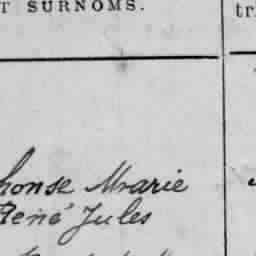 T SURNOMS.
tr
honse Marie
René Jules